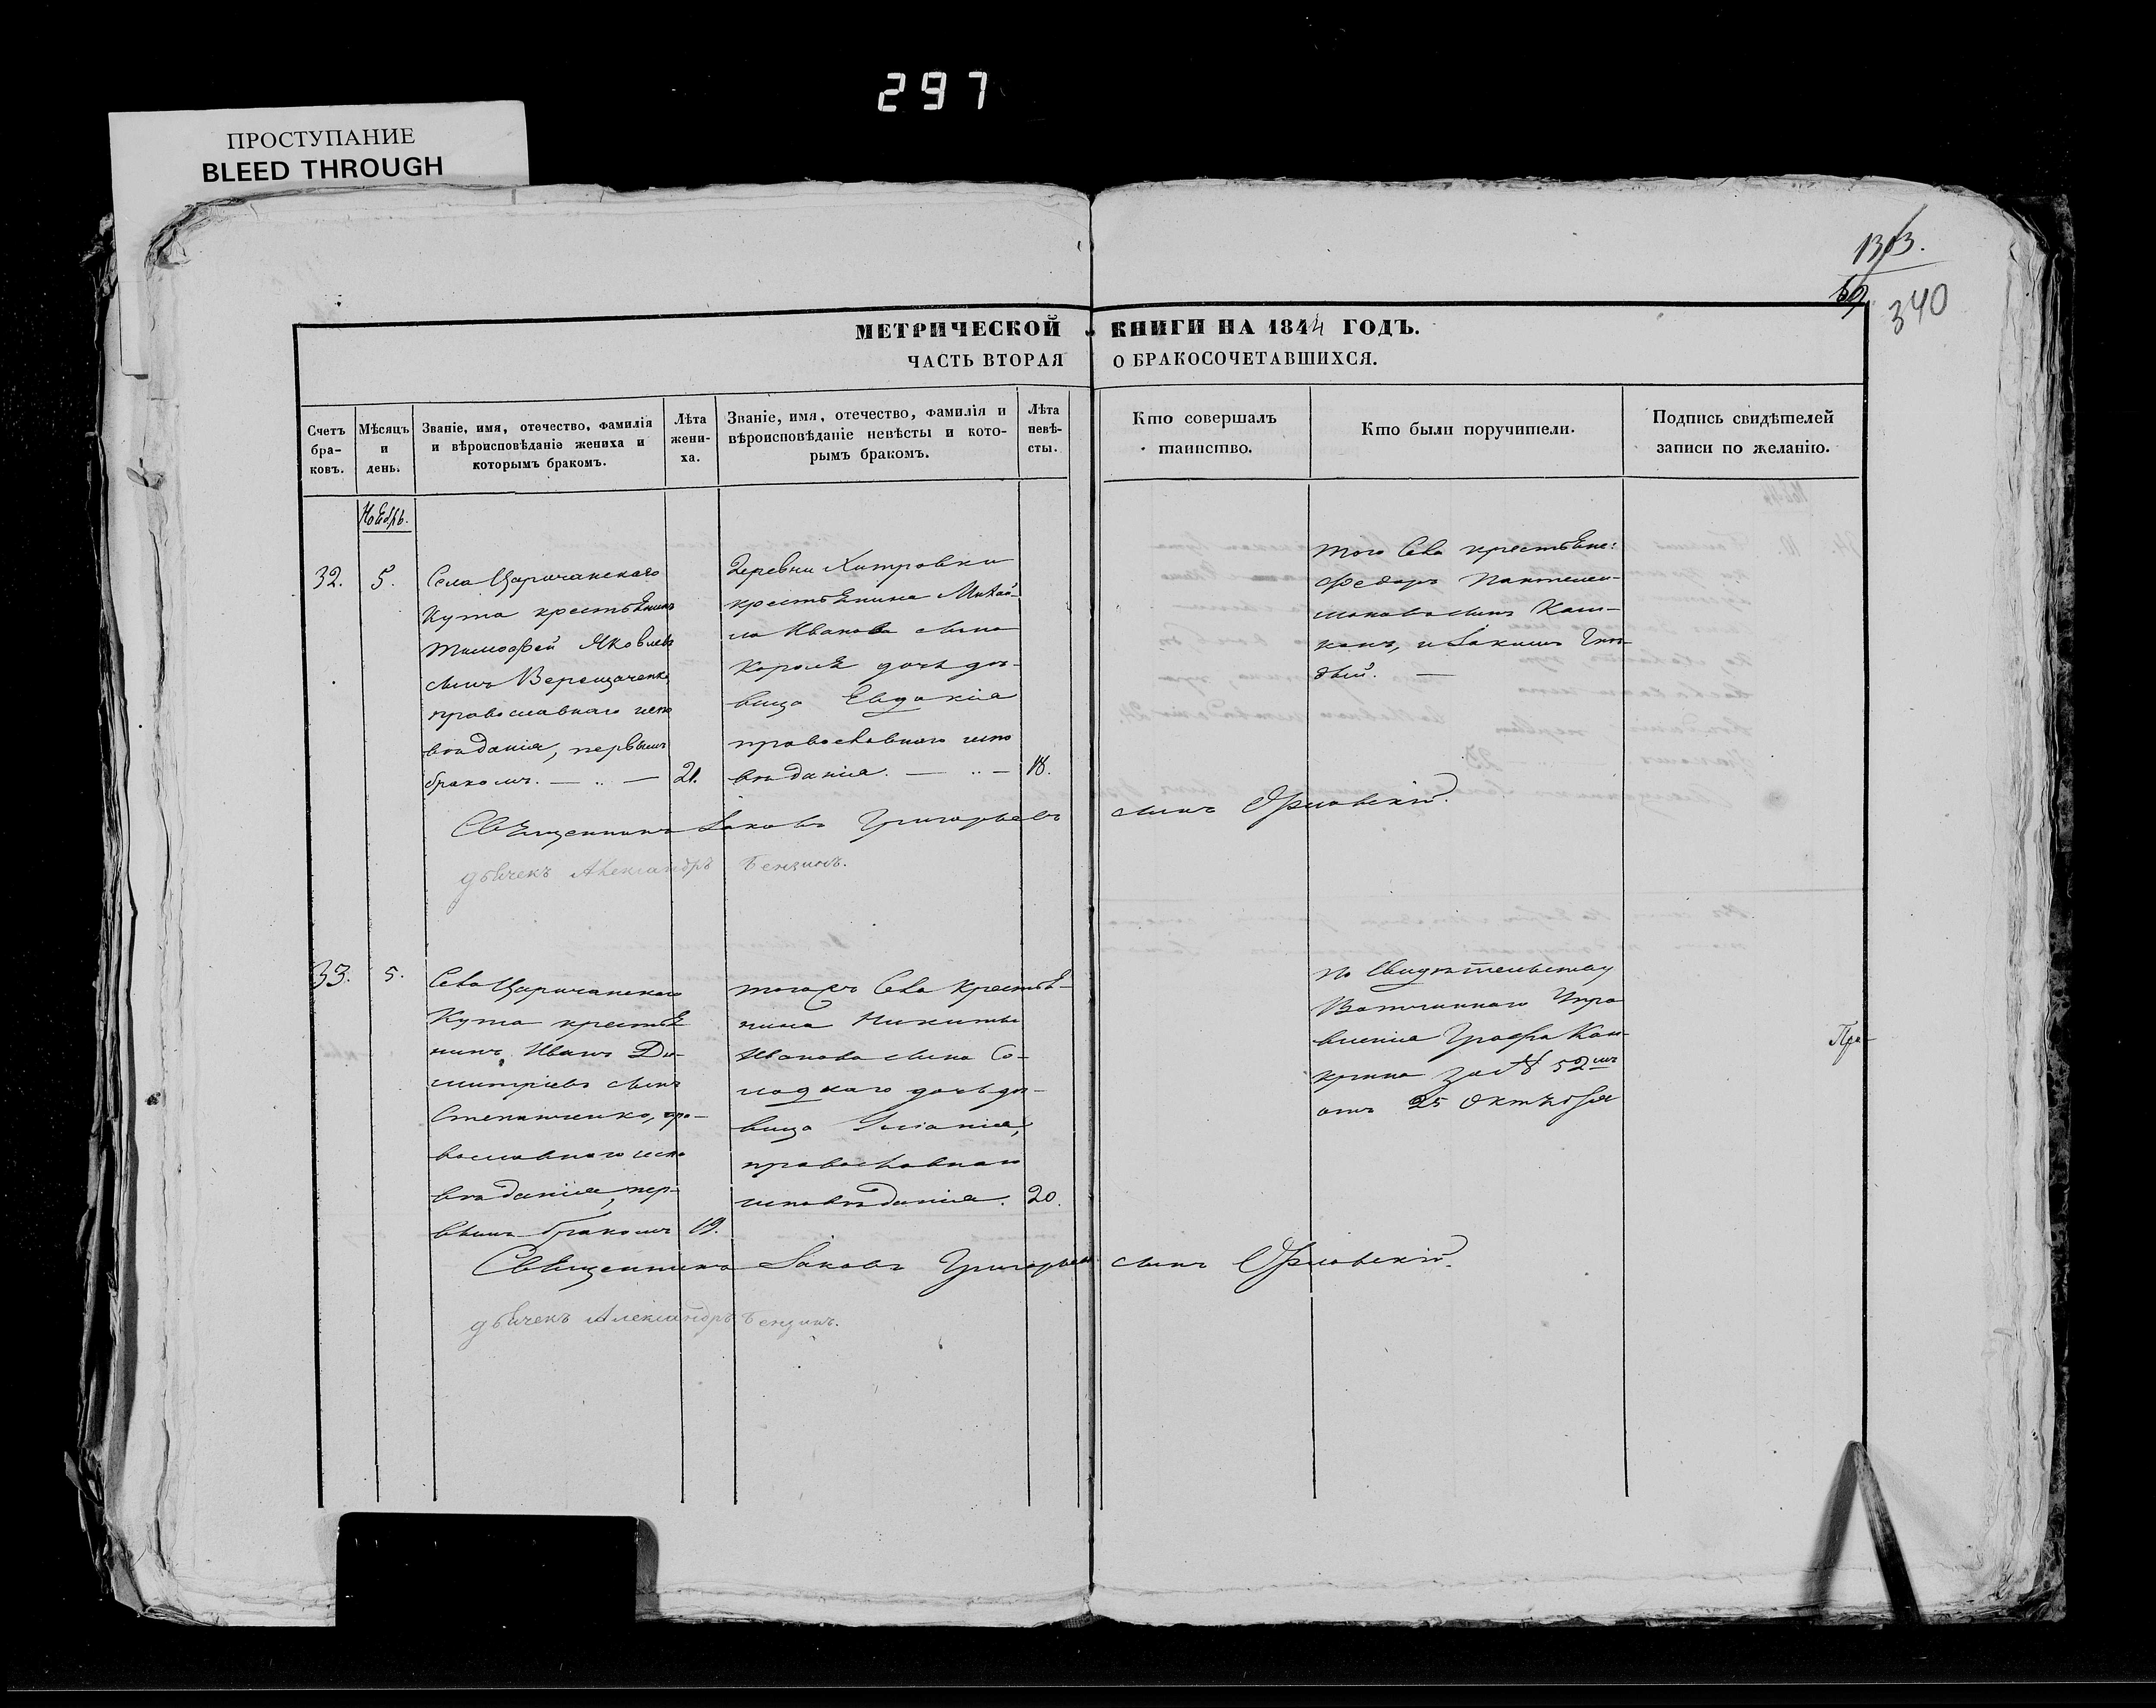 297
ПРОСТУПАНИЕ
BLEED THROUGH
340
МЕТРИЧЕСКОЙ КНИГИ НА 1844 ГОДЪ.
ЧАСТЬ ВТОРАЯ О БРАКОСОЧЕТАВШИХСЯ.
Счетъ бра-
ковъ.
Мѣсяцъ
и
день.
Званіе, имя, отечество, фамилія
и вѣроисповѣданіе жениха и
которымъ бракомъ.
Лѣта
жени-
ха.
Званіе, имя, отечество, фамилія и
вѣроисповѣданіе невѣсты и кото-
рымъ бракомъ.
Лѣта
невѣ-
сты.
Кто совершалъ
таинство.
Кто были поручители.
Подпись свидѣтелей
записи по желанію.
Ноябрь.
32.
5.
Села Царичанскаго
Кута крестьянинъ
Тимофей Яковлевъ
сынъ Верещаченко
православнаго испо
вѣданія, первымъ
бракомъ.
21.
деревни Хитровки
крестьянина Михай-
ла Иванова сына
Короля дочь дѣ-
вица Евдокія
православнаго испо
вѣданія.
18.
того села крестьяне:
Федоръ Пантелеи-
моновъ сынъ
и Іакимъ
Священникъ Іаковъ Григорьевъ сынъ Орловскій.
дьячекъ Александръ Бензинъ.
33.
5.
Села Царичанскаго
Кута крестья
нинъ Иванъ Ди-
митріевъ сынъ
Степанченко, пра-
вославнаго испо
вѣданія, пер-
вымъ бракомъ
19.
тогожъ села крестья-
нина Никиты
Иванова сына Со-
лодкаго дочь дѣ-
вица Уліанія,
православнаго
исповѣданія.
20.
по свидѣтельству
Вотчиннаго Упра
вленія Графа Кан-
крина за № 52мъ
отъ 25 Октября
Пра-
Священникъ Іаковъ Григорьевъ сынъ Орловскій.
дьячекъ Александръ Бензинъ.